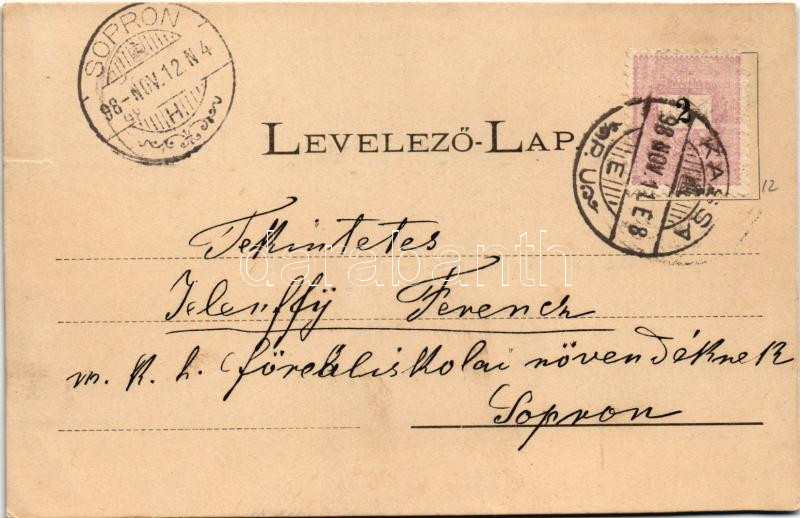 SOPRON
98-NOV.12 N4
LEVELEZŐ-LAP.
2
KASSA
98 NOV. 11 E8
P.U.
12
Tekintetes
Ferencz
m. k. h. főreáliskolai növendéknek
Sopron
darabanth